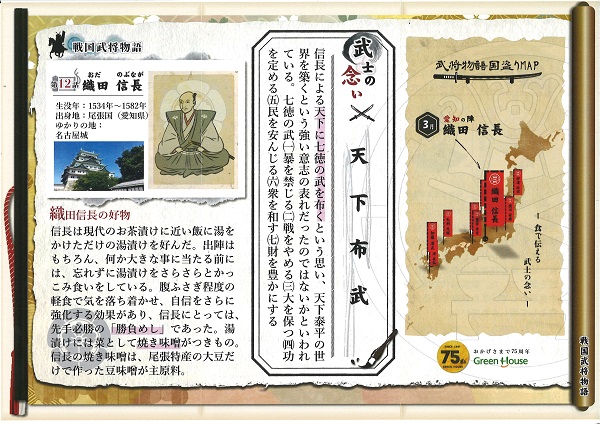 戦国武将物語
第12話
おだ のぶなが
織田 信長
生没年：1534年～1582年
出身地：尾張国（愛知県）
ゆかりの地：
名古屋城
織田信長の好物
信長は現代のお茶漬けに近い飯に湯を
かけただけの湯漬けを好んだ。出陣は
もちろん、何か大きな事に当たる前に
は、忘れずに湯漬けをさらさらとかっ
こみ食いをしている。腹ふさぎ程度の
軽食で気を落ち着かせ、自信をさらに
強化する効果があり、信長にとっては、
先手必勝の「勝負めし」であった。湯
漬けには菜として焼き味噌がつきもの。
信長の焼き味噌は、尾張特産の大豆だ
けで作った豆味噌が主原料。
武士の念い
天下布武
信長による天下に七徳の武を布くという思い、天下泰平の世
界を築くという強い意志の表れだったのではないかといわれ
ている。七徳の武㈠暴を禁じる㈡戦をやめる㈢大を保つ㈣功
を定める㈤民を安んじる㈥衆を和す㈦財を豊かにする
武将物語国盗りMAP
3月
愛知の陣
織田 信長
織田 信長
― 食で伝える
武士の念い ―
75th
おかげさまで75周年
Green House
戦国武将物語